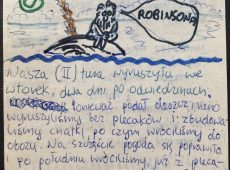 ROBINSONA
Nasza (II) tura wyruszyła we
wtorek, dwa dni po odwiedzinach.
Ponieważ padał deszcz,
wyruszyliśmy bez plecaków i zbudowa-
liśmy chatki, po czym wróciliśmy do
obozu. Na szczęście pogoda się poprawiła
i po południu wróciliśmy, już z pleca-